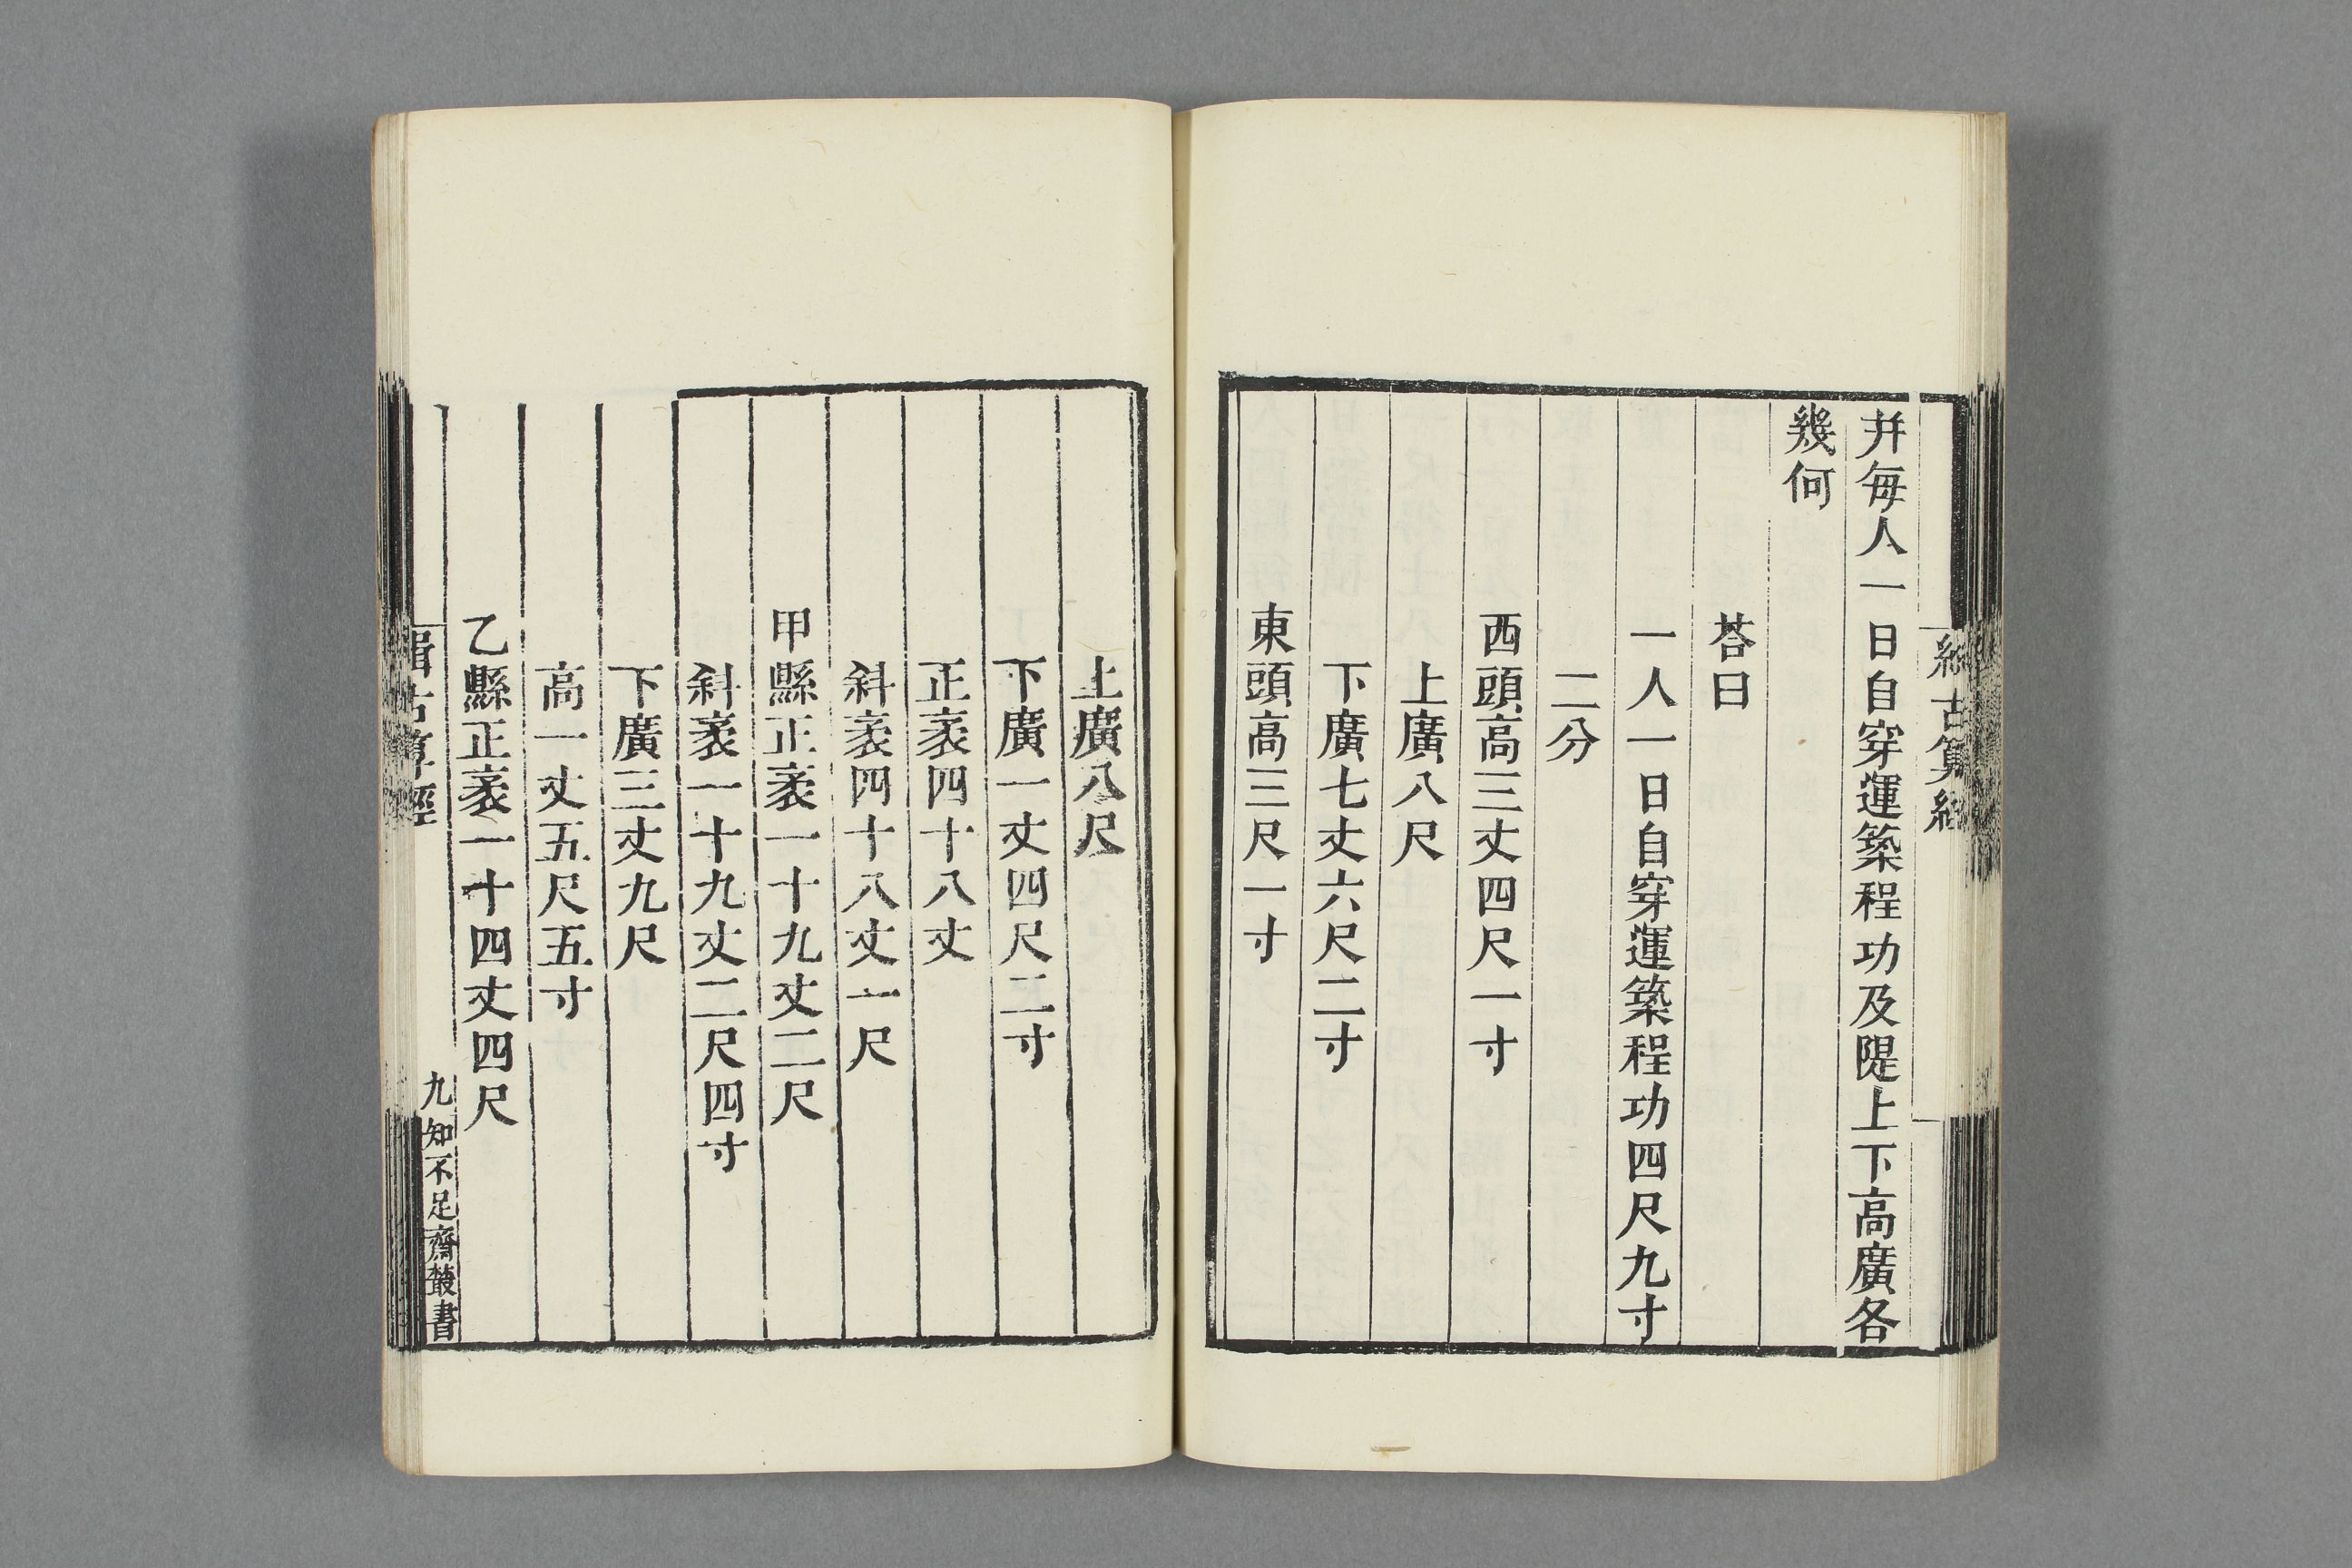 緝古算經
并每人一日自穿運築程功及隄上下高廣各
幾何
荅曰
一人一日自穿運築程功四尺九寸
二分
西頭高三丈四尺一寸
上廣八尺
下廣七丈六尺二寸
東頭高三尺一寸
上廣八尺
下廣一丈四尺二寸
正袤四十八丈
斜袤四十八丈一尺
甲縣正袤一十九丈二尺
斜袤一十九丈二尺四寸
下廣三丈九尺
高一丈五尺五寸
乙縣正袤一十四丈四尺
緝古算經
九知不足齋叢書